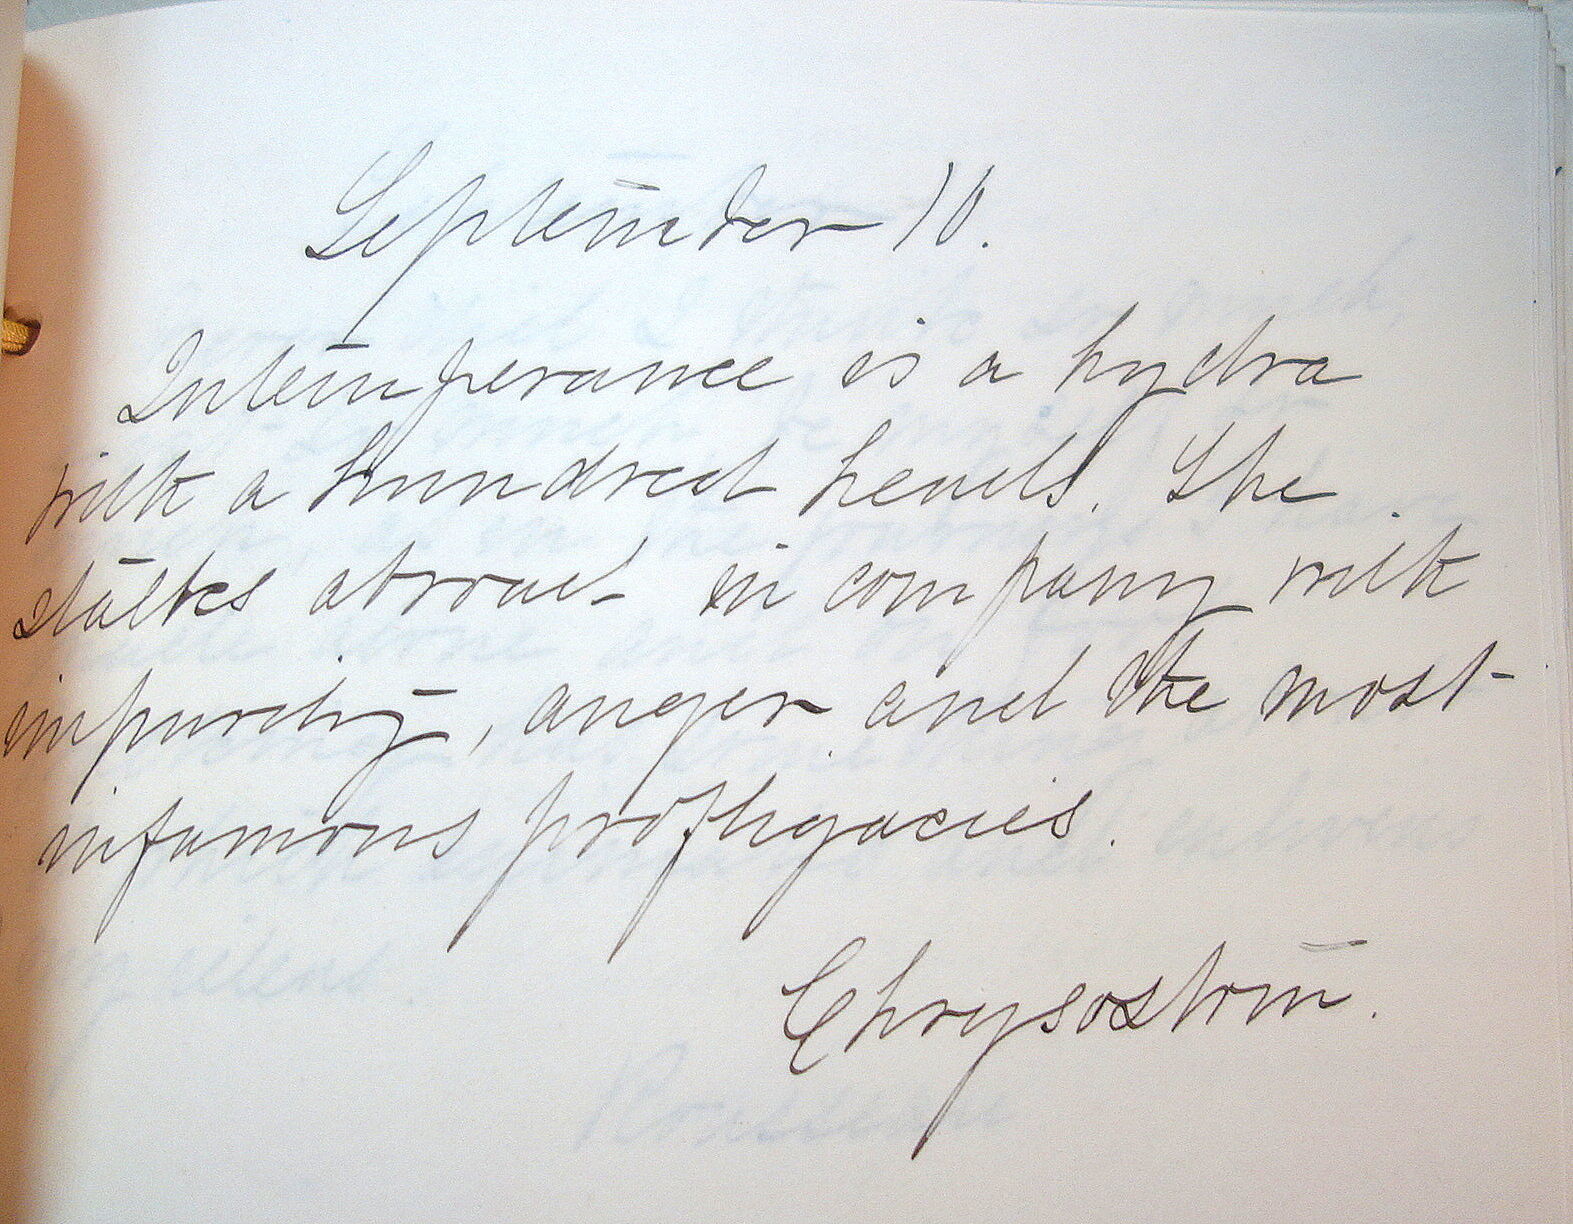 September 10.
Intemperance is a hydra
with a hundred heads. She
stalks abroad in company with
impurity, anger and the most
infamous profligacies.
Chrysostom.